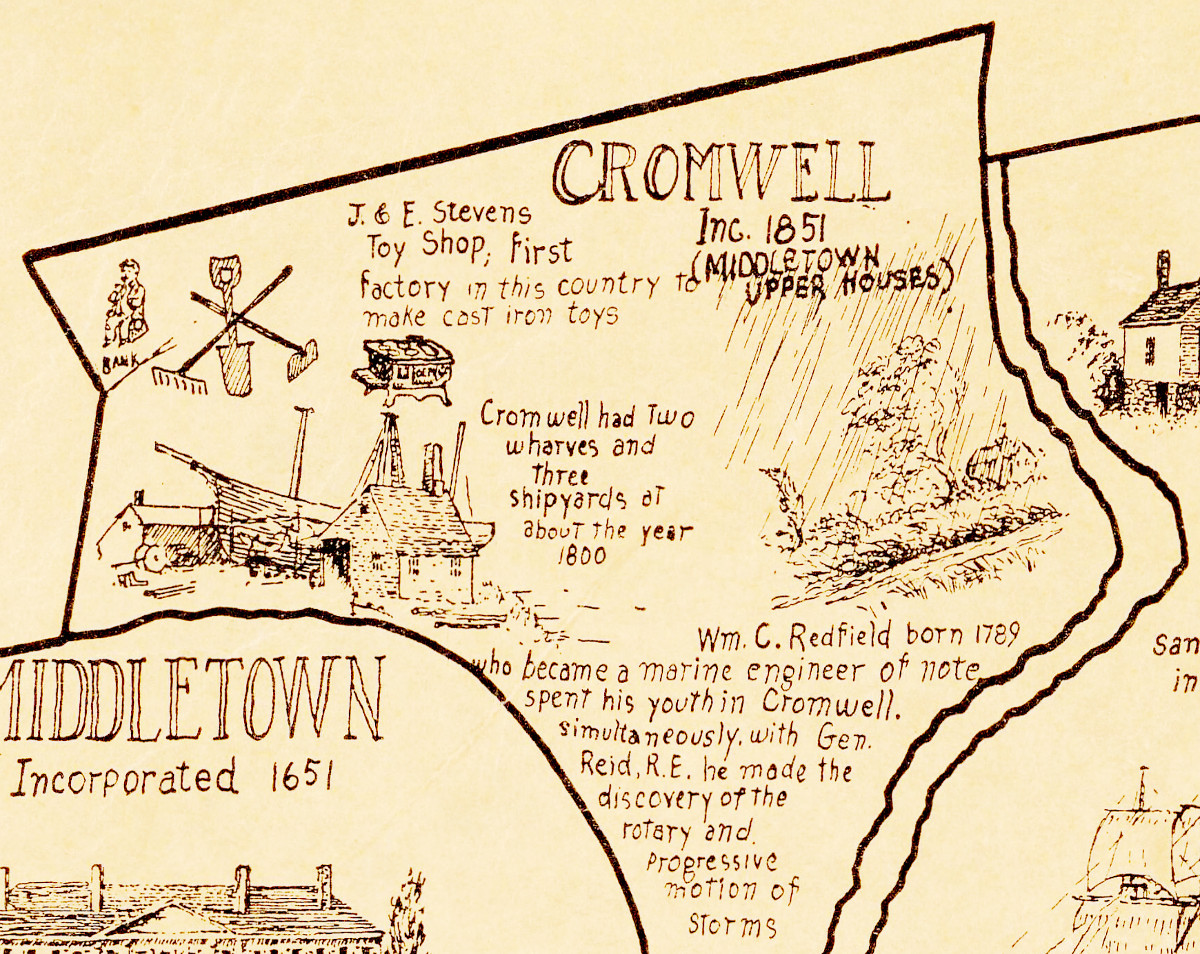 CROMWELL
Inc. 1851
(MIDDLETOWN
UPPER HOUSES)
J. & E. Stevens
Toy Shop, First
factory in this country to
make cast iron toys
BANK
Cromwell had Two
wharves and
Three
shipyards at
about the year
1800
Wm. C. Redfield born 1789
who became a marine engineer of note
spent his youth in Cromwell.
simultaneously, with Gen.
Reid, R.E. he made the
discovery of the
rotary and
progressive
motion of
storms
MIDDLETOWN
Incorporated 1651
San
in